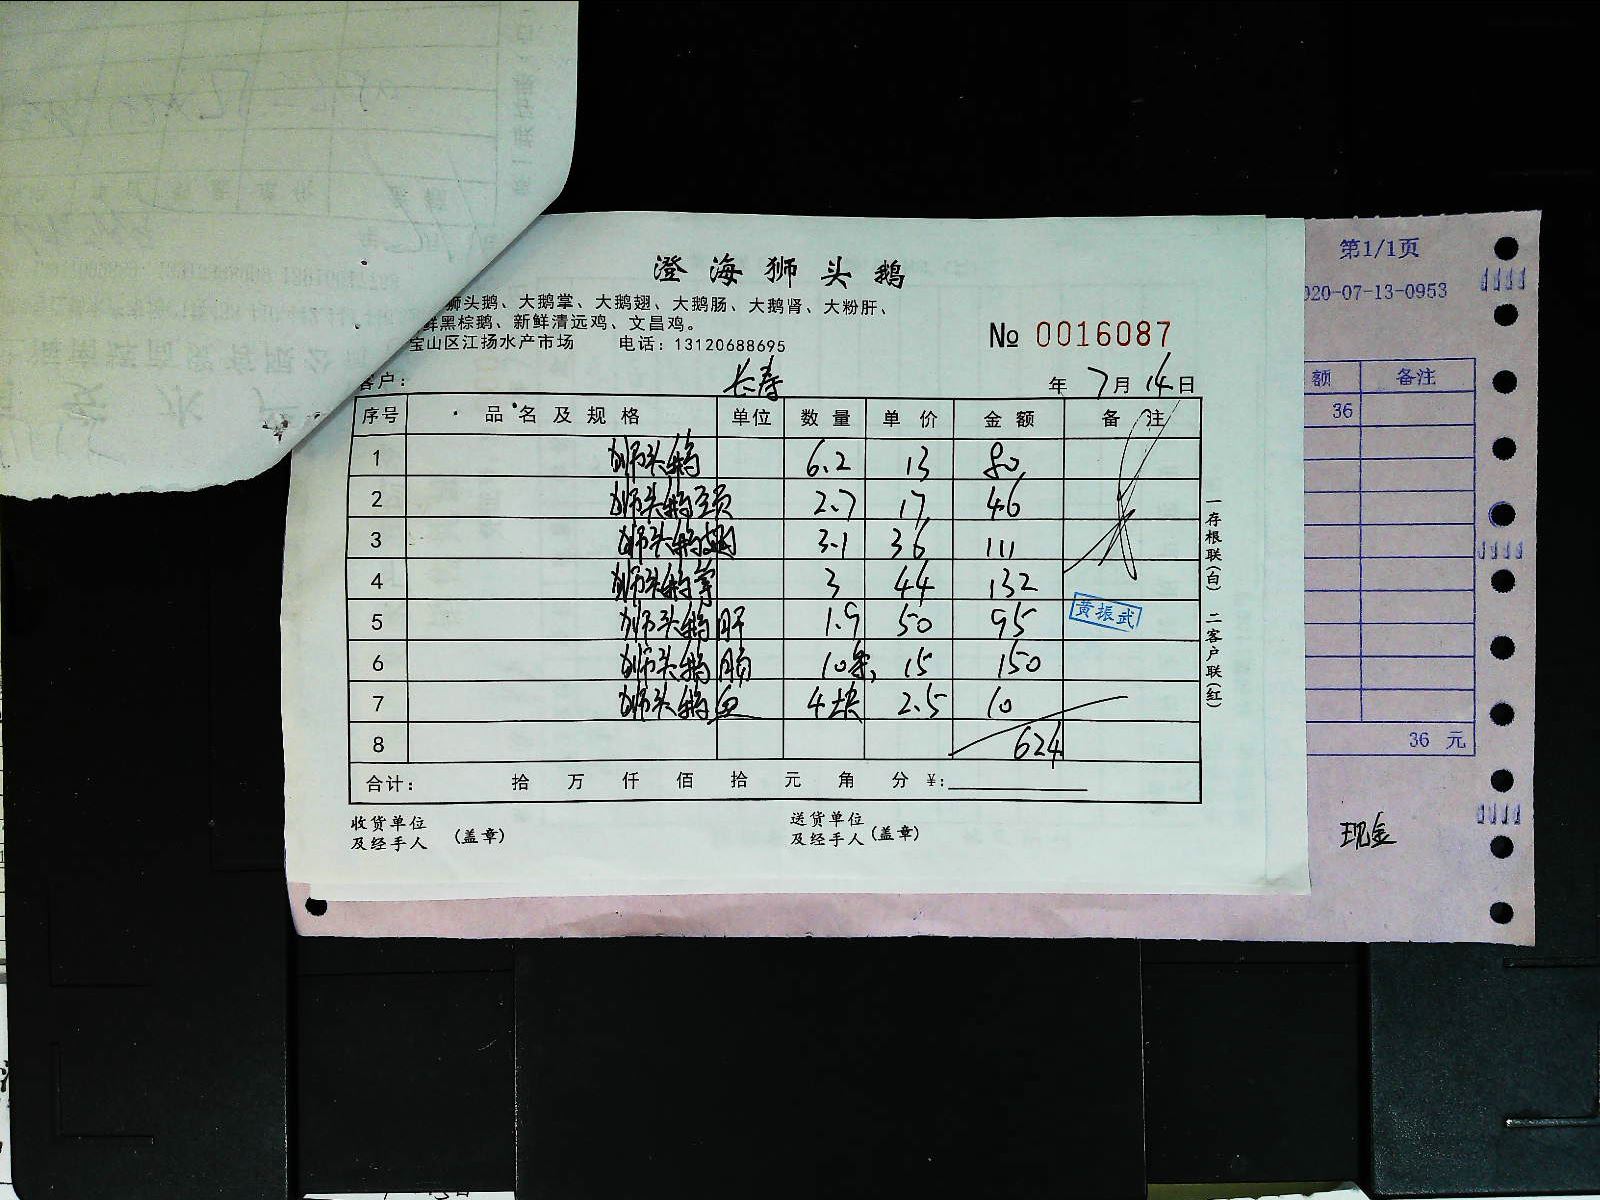 澄海狮头鹅
狮头鹅、大鹅掌、大鹅翅、大鹅肠、大鹅肾、大粉肝、
鲜黑棕鹅、新鲜清远鸡、文昌鸡。
宝山区江扬水产市场 电话：13120688695
№ 0016087
客户： 长寿 年 7月14日
序号 品名及规格 单位 数量 单价 金额 备注
1 狮头鹅 6.2 13 80
2 狮头鹅颈 2.7 17 46
3 狮头鹅翅 3.1 36 111
4 狮头鹅掌 3 44 132
5 狮头鹅肝 1.9 50 95
黄振武
6 狮头鹅肠 10条 15 150
7 狮头鹅血 4块 2.5 10
8 624
合计： 拾 万 仟 佰 拾 元 角 分 ¥:
收货单位
及经手人 （盖章）
送货单位
及经手人（盖章）
一存根联（白） 二客户联（红）
第1/1页
020-07-13-0953
额 备注
36
36 元
现金